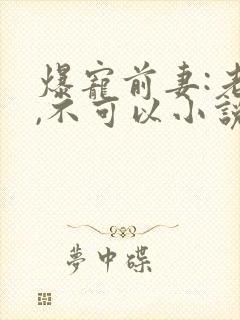 爆寵前妻:老
,不可以小說
夢中碟